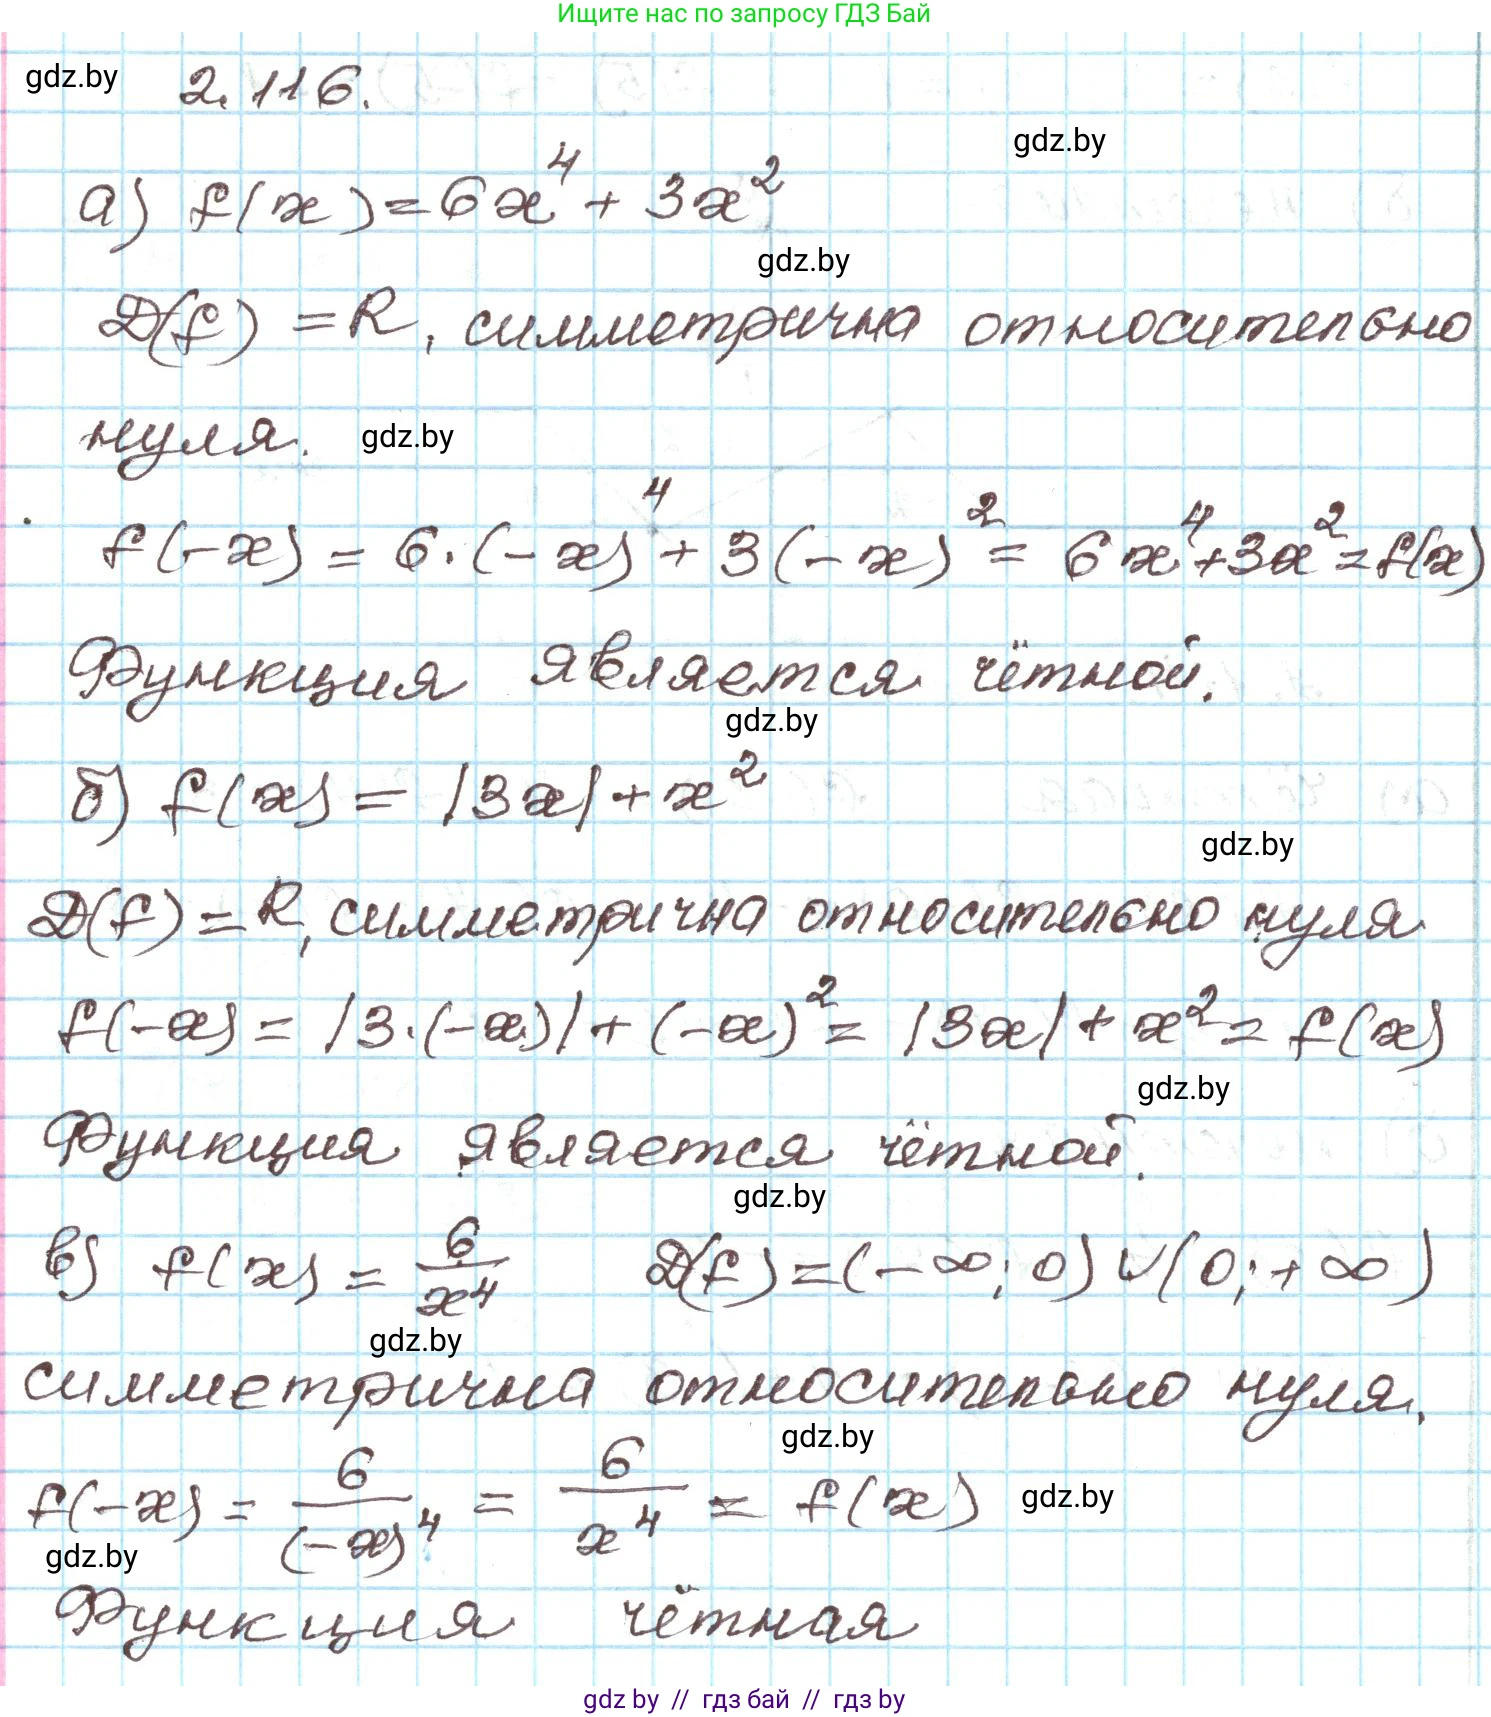 Ищите нас по запросу ГДЗ Бай
gdz.by 2.116.
gdz.by
а) f(x) = 6x⁴ + 3x²
gdz.by
D(f) = R, симметрична относительно
нуля. gdz.by
f(-x) = 6·(-x)⁴ + 3(-x)² = 6x⁴+3x² = f(x)
Функция является чётной.
gdz.by
б) f(x) = |3x| + x²
gdz.by
D(f) = R, симметрична относительно нуля
f(-x) = |3·(-x)| + (-x)² = |3x| + x² = f(x)
gdz.by
Функция является чётной.
gdz.by
в) f(x) = 6/x⁴ D(f) = (-∞; 0) ∪ (0; +∞)
gdz.by
симметрична относительно нуля.
gdz.by
f(-x) = 6/(-x)⁴ = 6/x⁴ = f(x) gdz.by
gdz.by
Функция чётная
gdz by // гдз бай // гдз by